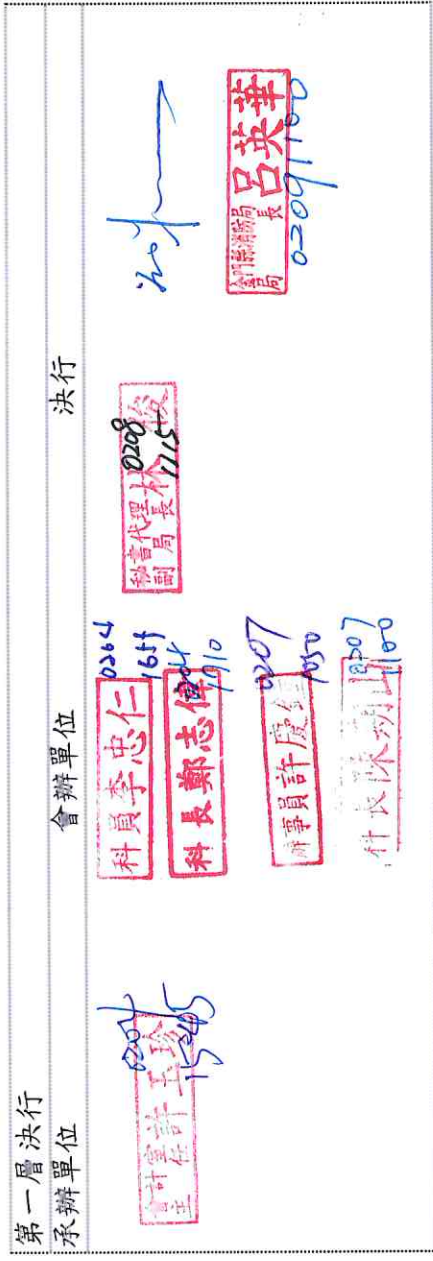 第一層決行
承辦單位
會辦單位
決行
會計室
主任
許玉珍
0204
1545
科員李忠仁
0204
科長鄭志偉
1710
辦事員許慶
0207
1050
科長陳
0207
1100
秘書代理
副局長
林
0208
1115
金門縣消防局
局長
呂英華
0209/1100